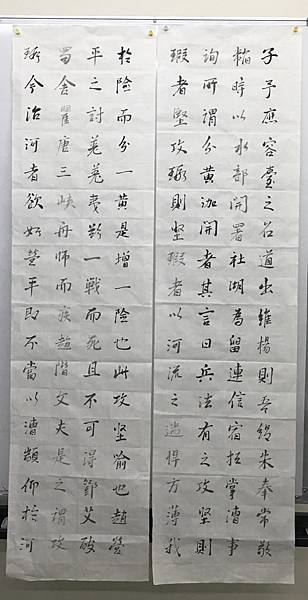 子予應容臺之召道出維楊則吾朱奉常敬
韜時以水部開署社湖為留連信宿抵掌漕事
詢所謂分黃泇開者其言曰兵法有之攻堅則
瑕者堅攻瑕則堅瑕者以河流之遄悍方薄我
於險而分一黃是增一險也此攻堅喻也趙營
平之討羌羌夷一戰而死且不可得鄧艾破
蜀舍瞿唐三峽舟師而疾趨階文夫是之謂攻
瑕今治河者欲如營平即不當以漕頫仰於河